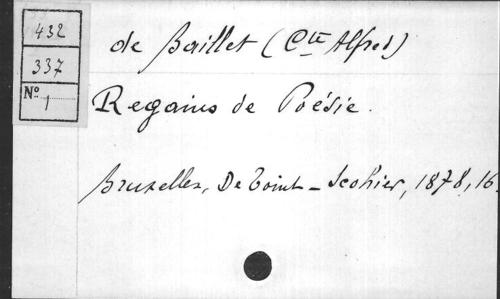 432
337
Nº 1
de Baillet (Cte Alfred)
Regains de Poésie.
Bruxelles, De Toint-Scohier, 1878, 16.